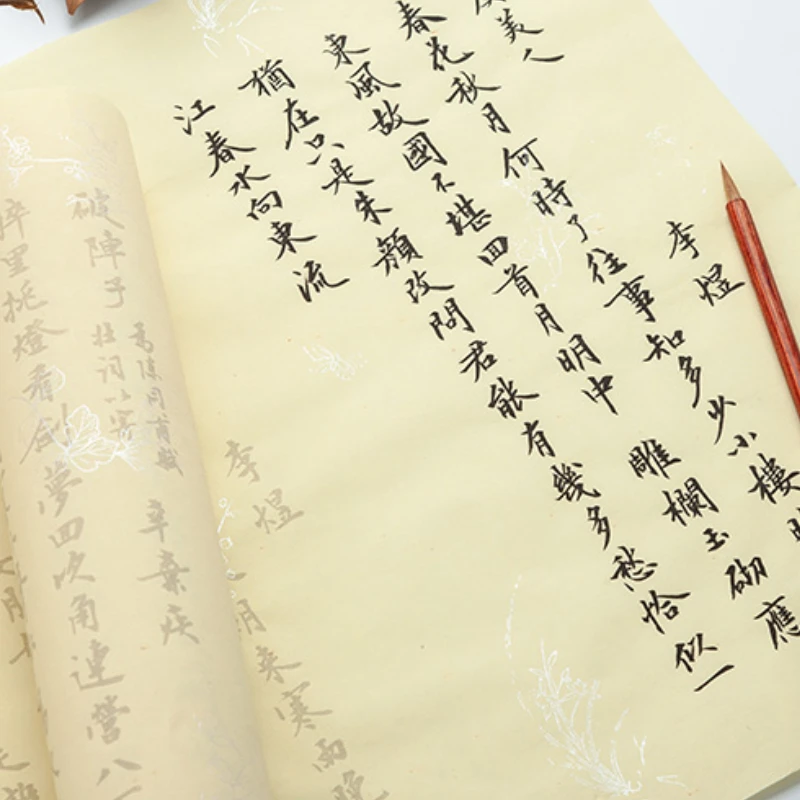 美人 李煜
春花秋月何時了往事知多少小樓
東風故國不堪回首月明中 雕欄玉砌應
猶在只是朱顏改問君能有幾多愁恰似一
江春水向東流
李煜
来寒雨晚
破陣子 為陳同甫賦壯詞以寄 辛棄疾
醉里挑燈看劍夢回吹角連營八